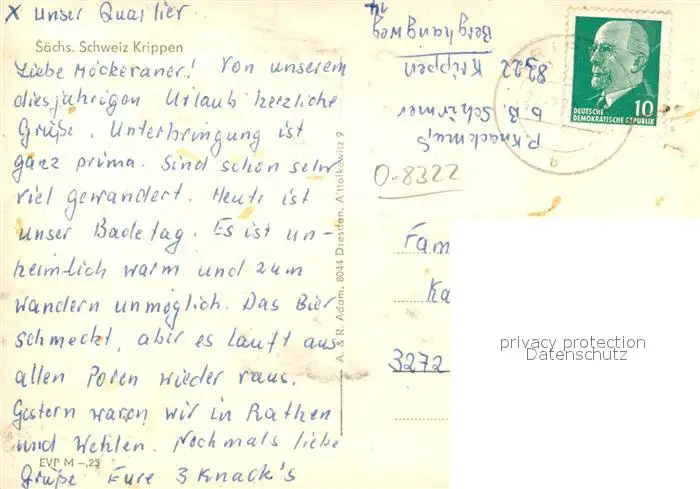 x unser Quartier
Sächs. Schweiz Krippen
Liebe Möckeraner! Von unserem
diesjährigen Urlaub herzliche
Grüße. Unterbringung ist
ganz prima. Sind schon sehr
viel gewandert. Heute ist
unser Badetag. Es ist un-
heimlich warm und zum
wandern unmöglich. Das Bier
schmeckt, aber es läuft aus
allen Poren wieder raus.
Gestern waren wir in Rathen
und Wehlen. Nochmals liebe
Grüße Eure 3 Knack's
EVP M -,25
A. & R. Adam, 8044 Dresden, Altolkewitz 9
P. Knackmuß
b. B. Schirmer
8322 Krippen
Berghangweg
14
DEUTSCHE
DEMOKRATISCHE REPUBLIK
10
b
O-8322
Fam
Ka
3272
privacy protection
Datenschutz